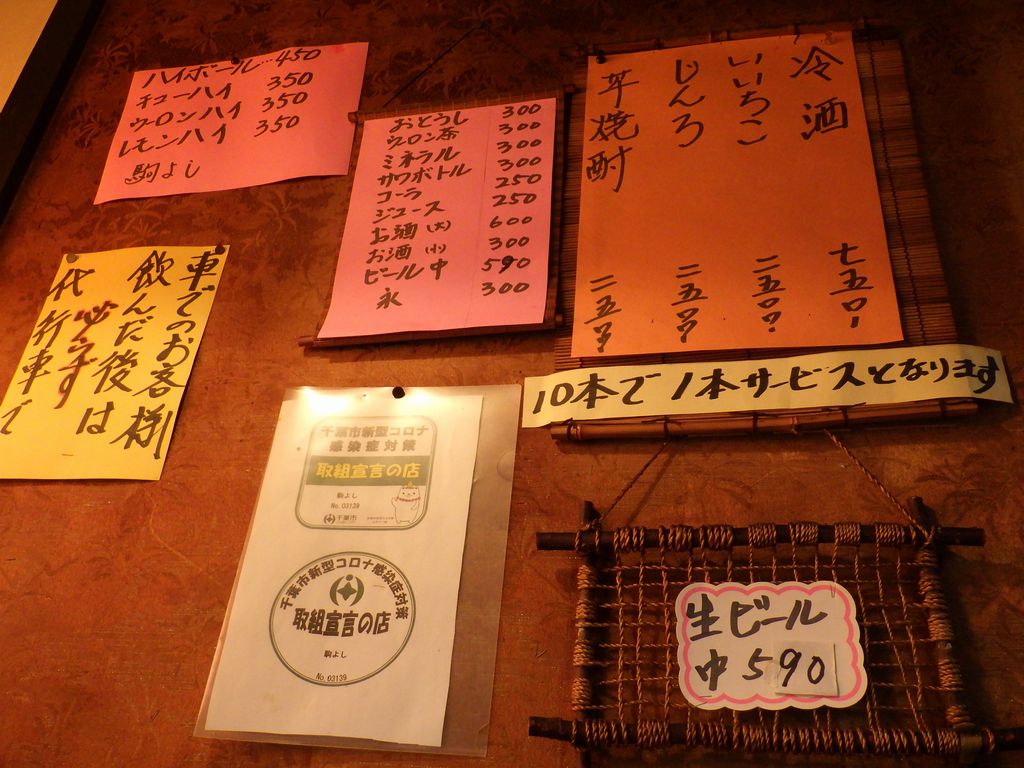 ハイボール…450
チューハイ 350
ウーロンハイ 350
レモンハイ 350
駒よし
おとうし 300
ウーロン茶 300
ミネラル 300
サワボトル 300
コーラ 250
ジュース 250
お酒(大) 600
お酒(小) 300
ビール中 590
氷 300
冷酒 七五〇
いいちこ 二五〇〇
じんろ 二五〇〇
芋焼酎 二五〇〇
10本で1本サービスとなります
車でのお客様
飲んだ後は
必らず
代行車で
千葉市新型コロナ
感染症対策
取組宣言の店
駒よし
No.03139
千葉市
千葉市新型コロナ感染症対策
取組宣言の店
駒よし
No.03139
生ビール
中590